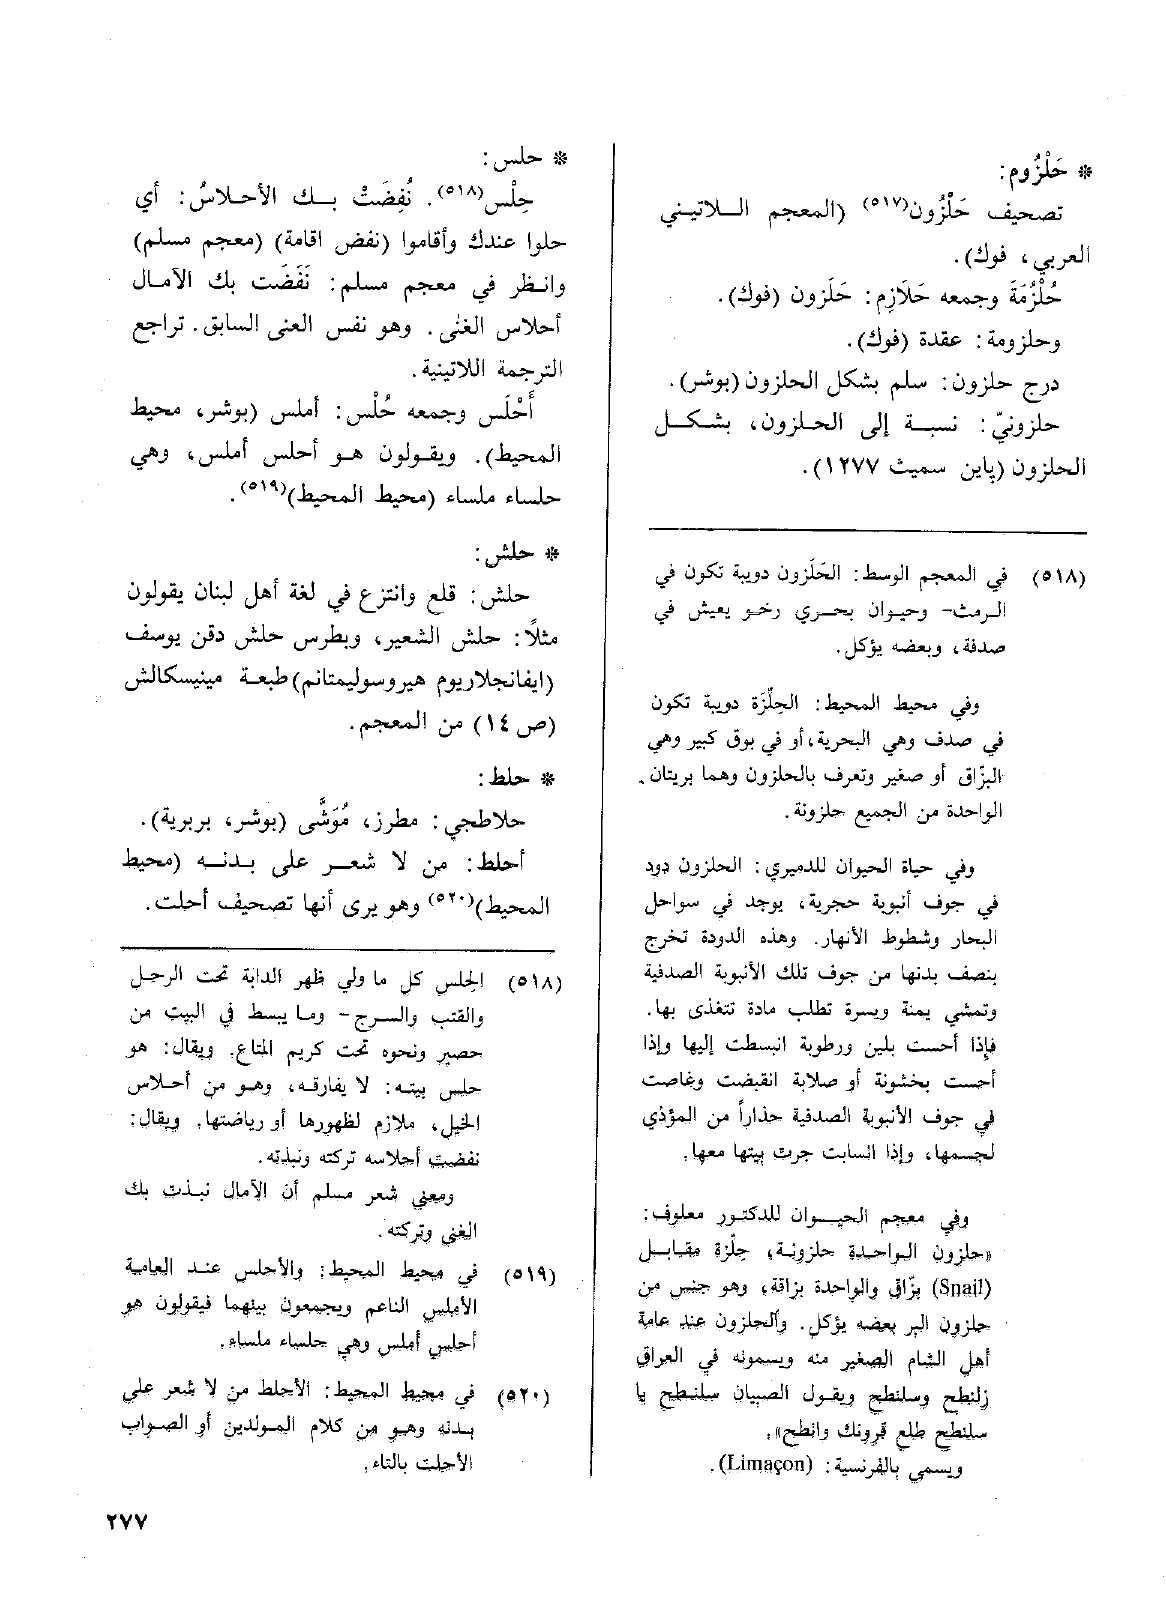 * حَلْزُوم:
تصحيف حَلْزُون(٥١٧) (المعجم اللاتيني
العربي، فوك).
حُلْزُمَة وجمعه حَلَازِم: حَلَزون (فوك).
وحلزومة: عقدة (فوك).
درج حلزون: سلم بشكل الحلزون (بوشر).
حلزونيّ: نسبة إلى الحلزون، بشكل
الحلزون (پاين سميث ١٢٧٧).
(٥١٨) في المعجم الوسط: الحَلَزون دويبة تكون في
الرمث- وحيوان بحري رخو يعيش في
صدفة، وبعضه يؤكل.
وفي محيط المحيط: الحِلِّزَة دويبة تكون
في صدف وهي البحرية، أو في بوق كبير وهي
البزّاق أو صغير وتعرف بالحلزون وهما بريتان.
الواحدة من الجميع حلزونة.
وفي حياة الحيوان للدميري: الحلزون دود
في جوف أنبوبة حجرية، يوجد في سواحل
البحار وشطوط الأنهار. وهذه الدودة تخرج
بنصف بدنها من جوف تلك الأنبوبة الصدفية
وتمشي يمنة ويسرة تطلب مادة تتغذى بها.
فإذا أحست بلين ورطوبة انبسطت إليها وإذا
أحست بخشونة أو صلابة انقبضت وغاصت
في جوف الأنبوبة الصدفية حذاراً من المؤذي
لجسمها، وإذا السابت جرت بيتها معها.
وفي معجم الحيوان للدكتور معلوف:
«حلزون الواحدة حلزونة، حِلِّزة مقابل
(Snail) بزّاق والواحدة بزاقة، وهو جنس من
حلزون البر بعضه يؤكل. والحلزون عند عامة
أهل الشام الصغير منه ويسمونه في العراق
زلنطح وسلنطح ويقول الصبيان سلنطح يا
سلنطح طلع قرونك وانطح».
ويسمى بالفرنسية: (Limaçon).
* حلس:
حِلْس(٥١٨). نُفِضَتْ بك الأحلاسُ: أي
حلوا عندك وأقاموا (نفض اقامة) (معجم مسلم)
وانظر في معجم مسلم: نَفَضَت بك الآمال
أحلاس الغنى. وهو نفس العنى السابق. تراجع
الترجمة اللاتينية.
أَحْلَس وجمعه حُلْس: أملس (بوشر، محيط
المحيط). ويقولون هو أحلس أملس، وهي
حلساء ملساء (محيط المحيط)(٥١٩).
* حلش:
حلش: قلع وانتزع في لغة أهل لبنان يقولون
مثلاً: حلش الشعير، وبطرس حلش دقن يوسف
(ايفانجلاريوم هيروسوليمتانم) طبعة مينيسكالش
(ص ١٤) من المعجم.
* حلط:
حلاطجي: مطرز، مُوَشَّى (بوشر، بربرية).
أحلط: من لا شعر على بدنه (محيط
المحيط)(٥٢٠) وهو يرى أنها تصحيف أحلت.
(٥١٨) الحِلس كل ما ولي ظهر الدابة تحت الرحل
والقتب والسرج- وما يبسط في البيت من
حصير ونحوه تحت كريم المتاع. ويقال: هو
حلس بيته: لا يفارقه، وهو من أحلاس
الخيل، ملازم لظهورها أو رياضتها. ويقال:
نفضت أحلاسه تركته ونبذته.
ومعنى شعر مسلم أن الآمال نبذت بك
الغنى وتركته.
(٥١٩) في محيط المحيط: والأحلس عند العامية
الأملس الناعم ويجمعون بينهما فيقولون هو
أحلس أملس وهي حلساء ملساء.
(٥٢٠) في محيط المحيط: الأحلط من لا شعر على
بدنه وهو من كلام المولدين أو الصواب
الأحلت بالتاء.
٢٧٧